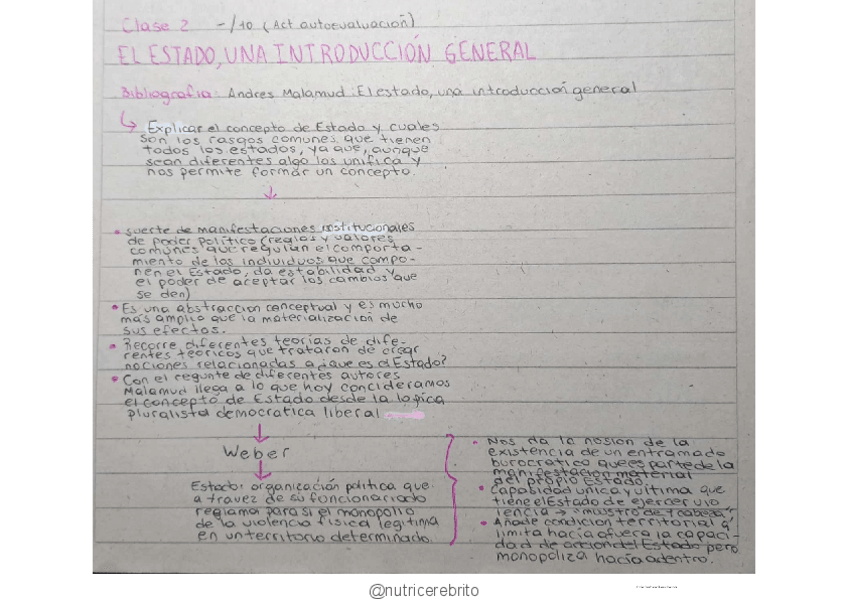 Clase 2 -/10 (Act autoevaluación)
EL ESTADO, UNA INTRODUCCIÓN GENERAL
Bibliografía: Andres Malamud: El estado, una introducción general
↳ Explicar el concepto de Estado y cuales
son los rasgos comunes que tienen
todos los estados, ya que, aunque
sean diferentes algo los unifica y
nos permite formar un concepto.
↓
• suerte de manifestaciones institucionales
de poder político (reglas y valores
comunes que regulan el comporta-
miento de los individuos que compo-
nen el Estado, da estabilidad y
el poder de aceptar los cambios que
se den)
• Es una abstracción conceptual y es mucho
más amplio que la materialización de
sus efectos.
• Recorre diferentes teorías de dife-
rentes teóricos que trataron de crear
nociones relacionadas a ¿que es el Estado?
• Con el regunte de diferentes autores
Malamud llega a lo que hoy concideramos
el concepto de Estado desde la logica
pluralista democratica liberal
↓
Weber
↓
Estado: organización politica que
a travez de su foncionariado
reglama para si el monopolio
de la violencia fisica legitima
en un territorio determinado.
• Nos da la nosion de la
existencia de un entramado
burocratico que es parte de la
manifestacion material
del propio Estado.
• Capasidad unica y ultima que
tiene el Estado de ejercer vio
lencia →
• Añade condicion territorial q'
limita hacia afuera la capaci-
dad de accion del Estado pero
monopoliza hacia adentro.
@nutricerebrito